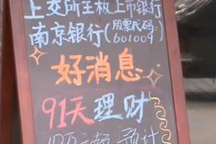 上交所主板上市银行
南京银行(股票代码:601009)
好消息
91天理财